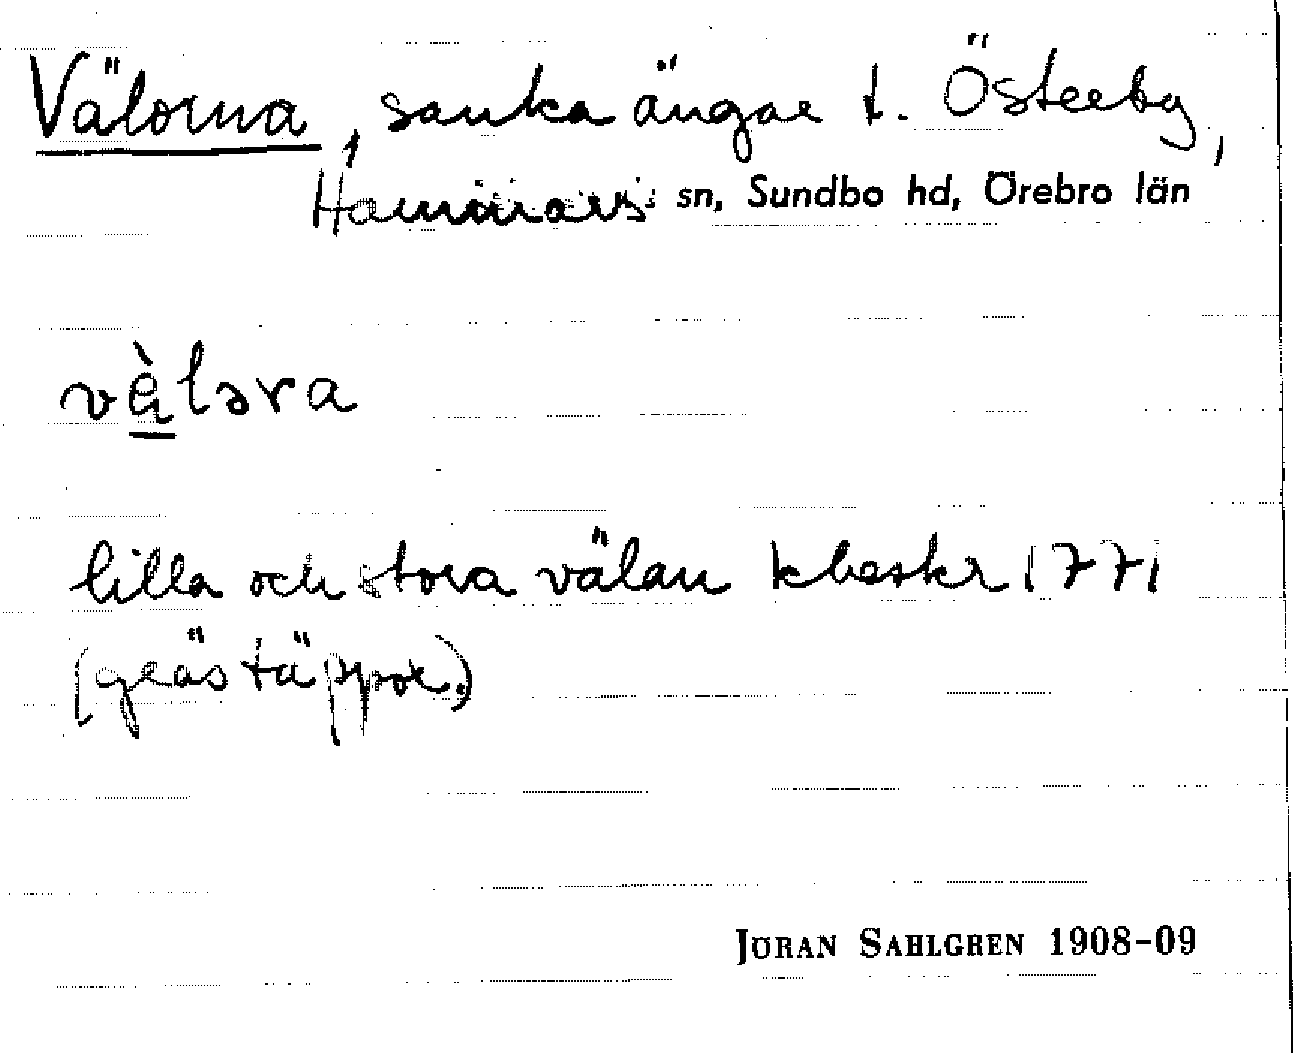 Välorna, sanka ängar t. Österby,
Hammars sn, Sundbo hd, Örebro län
vä̀ləra
lilla och stora välan kbeskr 1771
(gräs täppor.)
JÖRAN SAHLGREN 1908-09